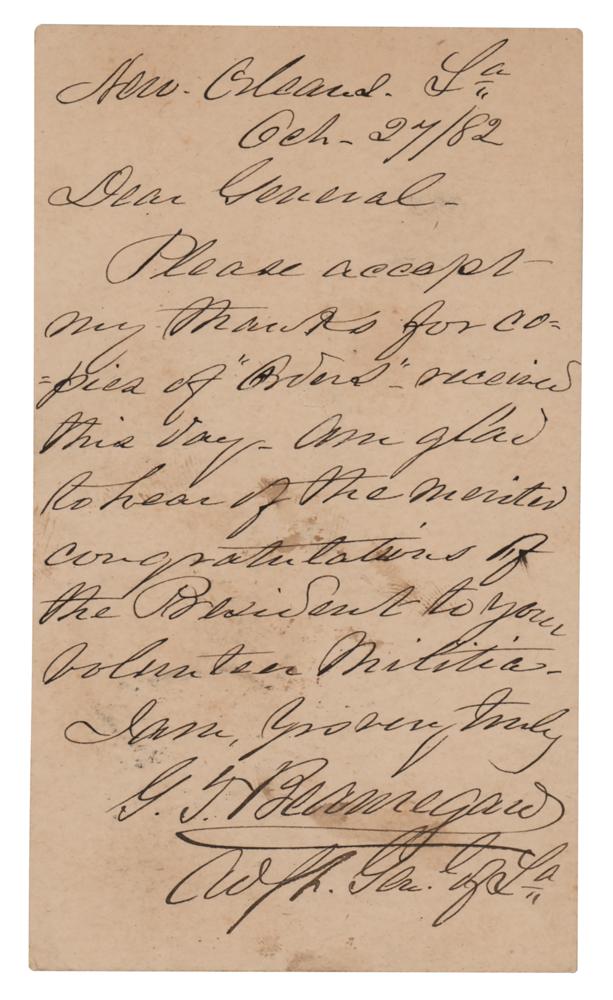 New. Orleans. La
Oct- 27/82
Dear General-
Please accept
my thanks for co=
=pies of "Orders"- received
this day- Am glad
to hear of the merited
congratulations of
the President to your
Volunteer Militia-
I am, Yrs very truly
G. T. Beauregard
Adjt. Gen. of La